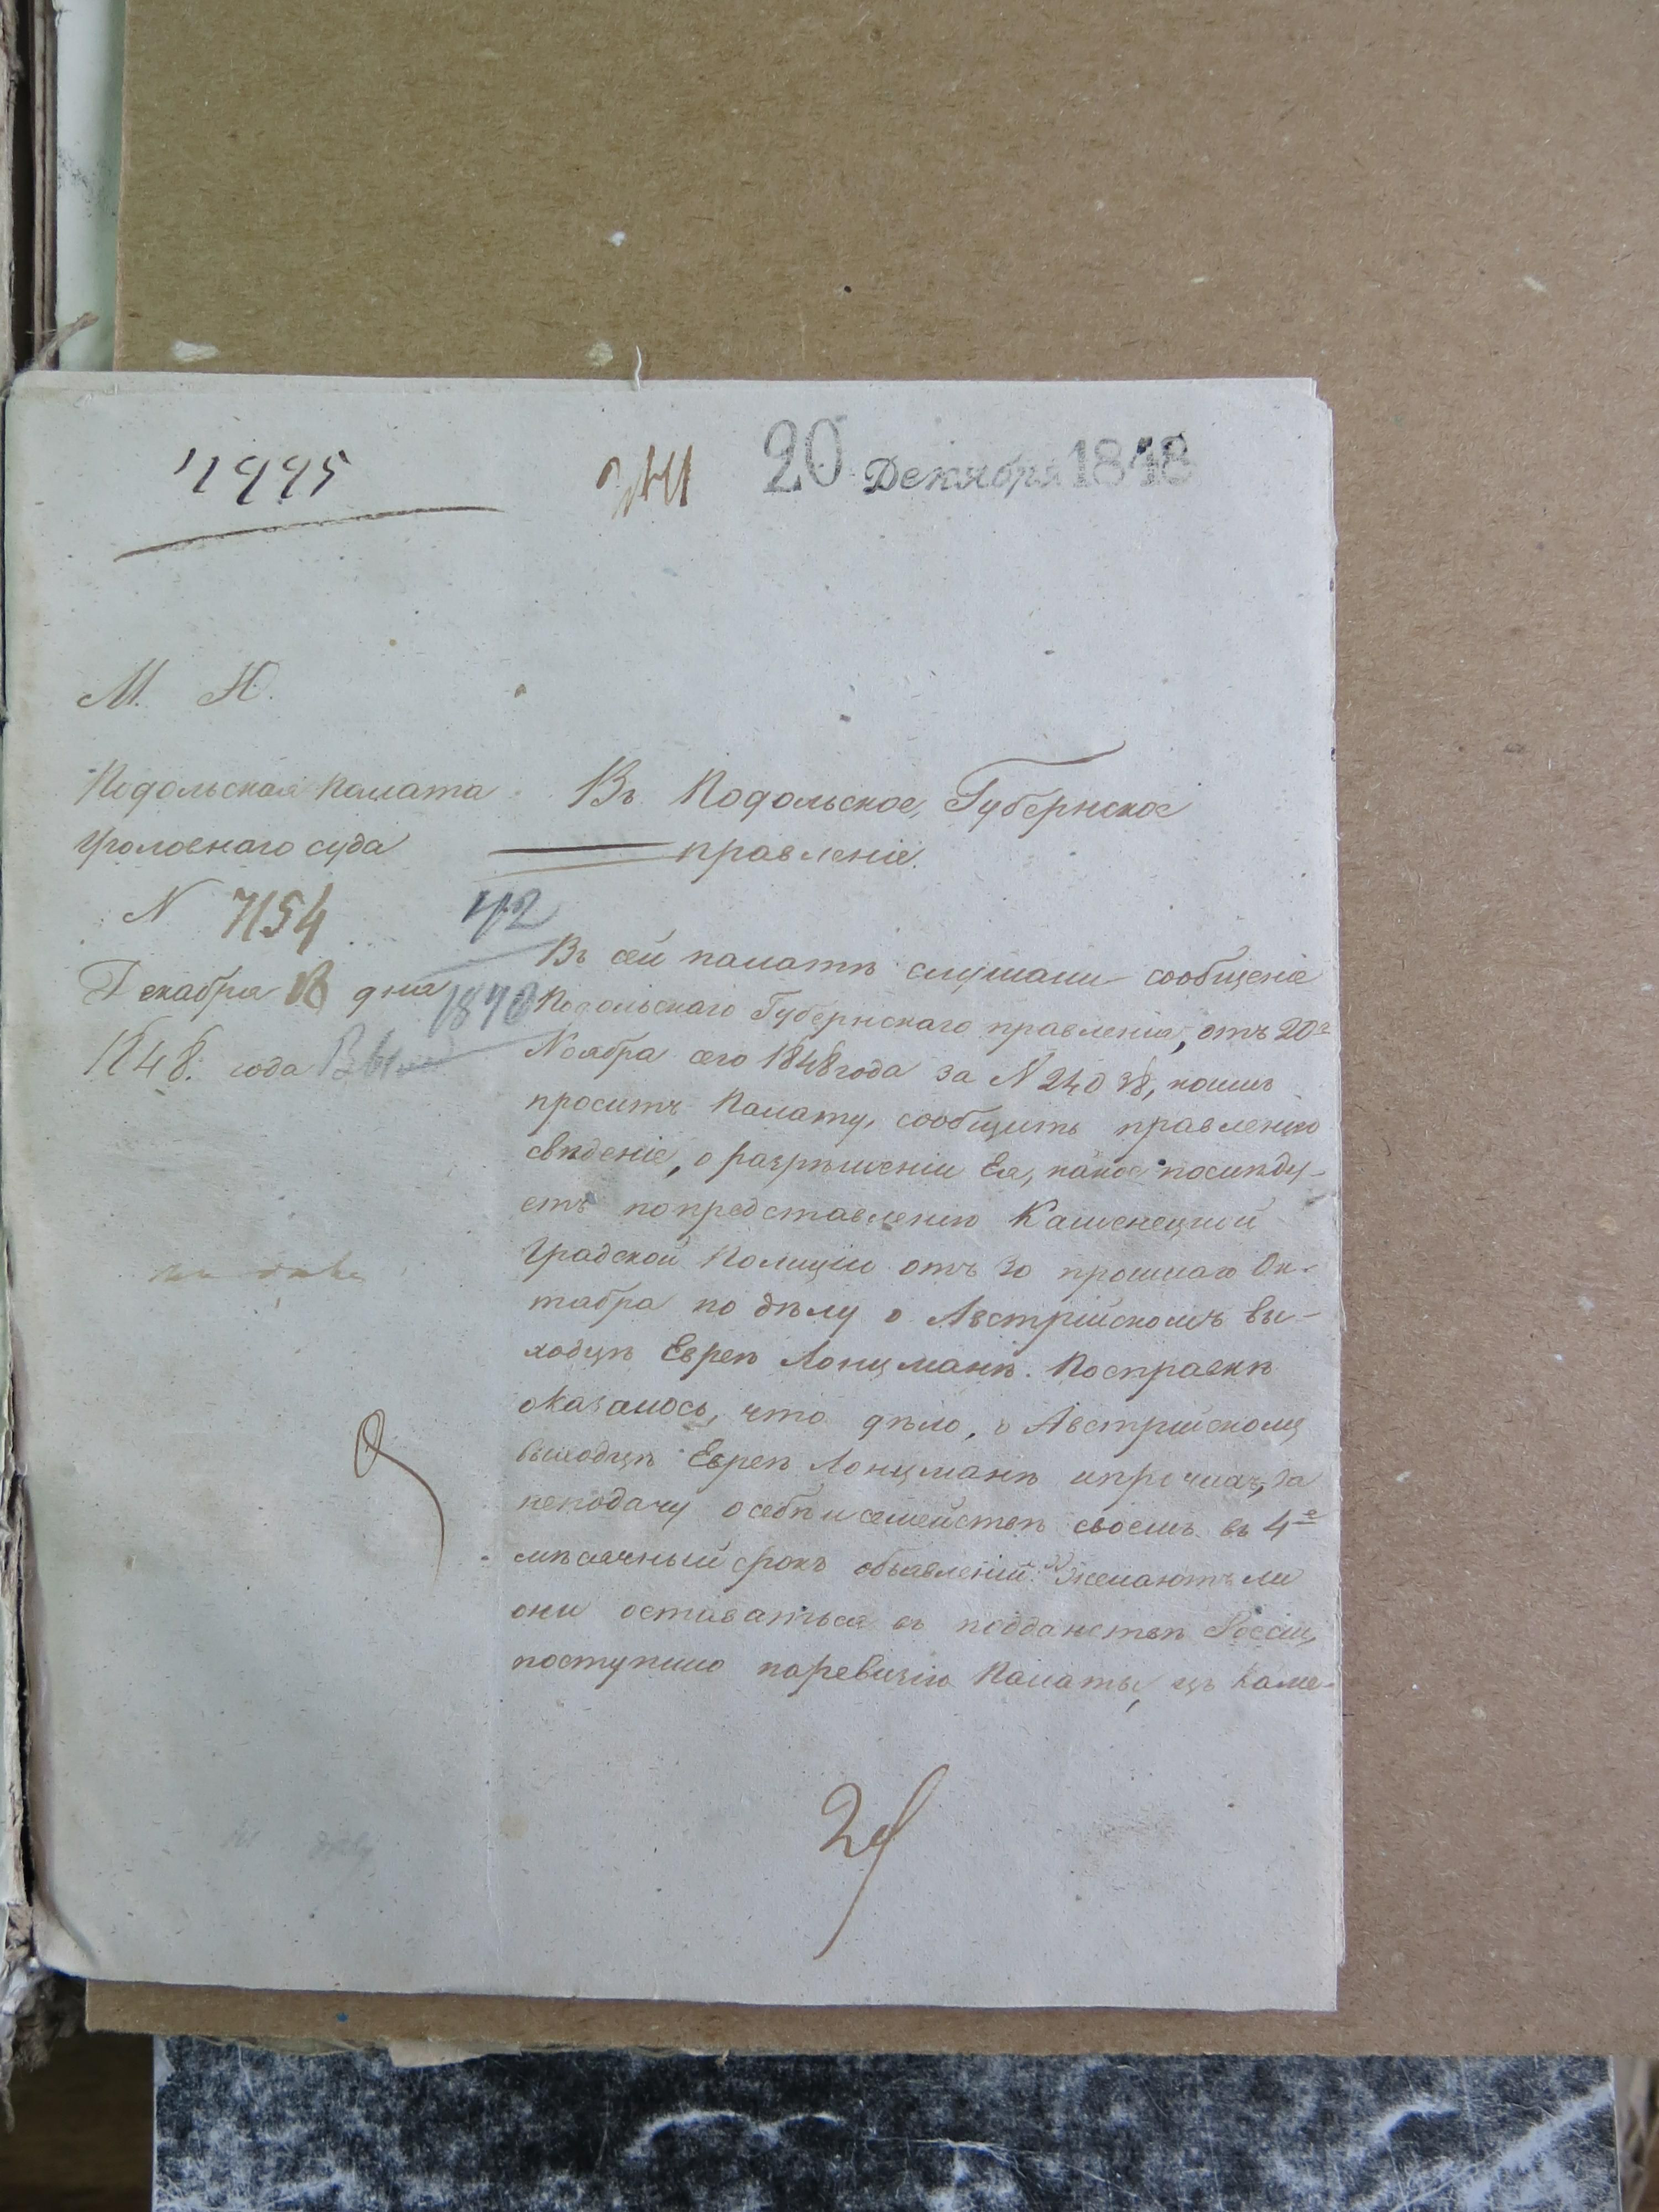 20 Декабря 1848
М. Ю.
Подольская Палата
Уголовнаго суда
N 7154
Декабря 18 дня
1848. года
Въ Подольское Губернское
правленіе.
Въ сей палатѣ слушали сообщеніе
Подольскаго Губернскаго правленія, отъ 20го
Ноября сего 1848 года за N 24038, коимъ
проситъ Палату, сообщить правленію
свѣденіе, о разрѣшеніи Ея, какое послѣду-
етъ по представленію Каменецкой
Градской Полиціи отъ 30 прошлаго Ок-
табра по дѣлу о Австрійскомъ вы-
ходцѣ Евреѣ Лонцманѣ. По справкѣ
оказалось, что дѣло, о Австрійскомъ
выходцѣ Евреѣ Лонцманѣ и прочихъ, за
неподачу о себѣ и семействѣ своемъ въ 4е
мѣсячный срокъ объявленій: желаютъ ли
они оставаться въ подданствѣ Россіи,
поступило на ревизію Палаты, изъ Каме-